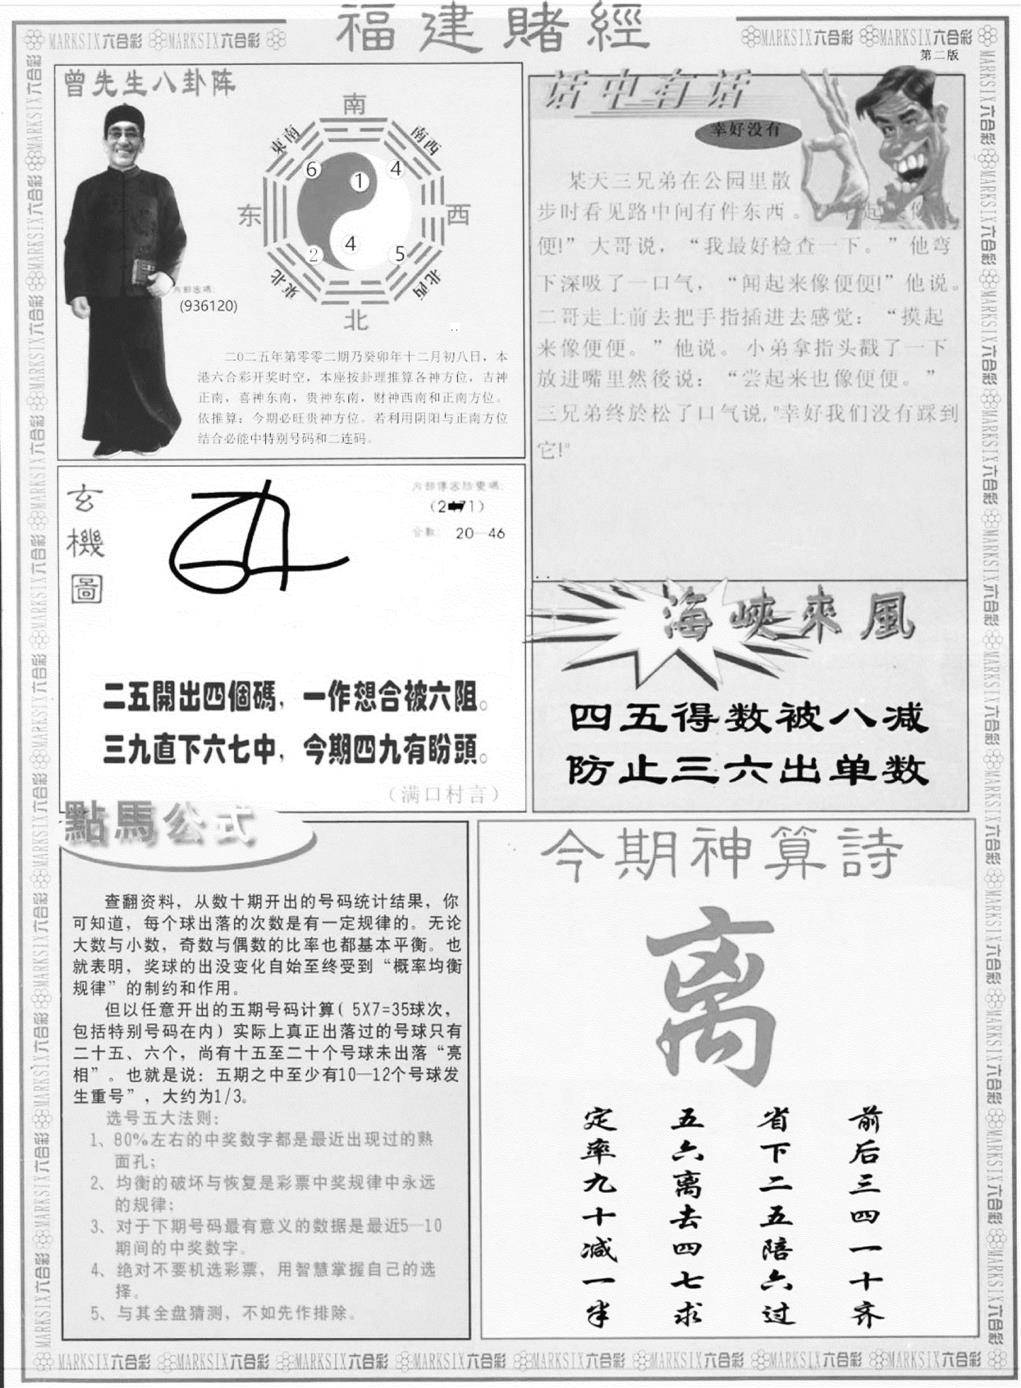 福建賭經
MARKSIX六合彩 MARKSIX六合彩
MARKSIX六合彩 MARKSIX六合彩
第二版
曾先生八卦阵
南
東南 南西
6 1 4
东 西
2 4 5
東北 北西
北
(936120)
二0二五年第零零二期乃癸卯年十二月初八日，本
港六合彩开奖时空，本座按卦理推算各神方位，吉神
正南，喜神东南，贵神东南，财神西南和正南方位。
依推算：今期必旺贵神方位。若利用阴阳与正南方位
结合必能中特别号码和二连码。
话中有话
幸好没有
某天三兄弟在公园里散
步时看见路中间有件东西。
便!”大哥说，“我最好检查一下。”他弯
下深吸了一口气，“闻起来像便便!”他说。
二哥走上前去把手指插进去感觉：“摸起
来像便便。”他说。小弟拿指头戳了一下
放进嘴里然後说：“尝起来也像便便。”
三兄弟终於松了口气说,"幸好我们没有踩到
它!"
玄機圖
20—46
二五開出四個碼，一作想合被六阻。
三九直下六七中，今期四九有盼頭。
（满口村言）
海峽來風
四五得数被八减
防止三六出单数
點馬公式
查翻资料，从数十期开出的号码统计结果，你
可知道，每个球出落的次数是有一定规律的。无论
大数与小数，奇数与偶数的比率也都基本平衡。也
就表明，奖球的出没变化自始至终受到“概率均衡
规律”的制约和作用。
但以任意开出的五期号码计算( 5X7=35球次，
包括特别号码在内)实际上真正出落过的号球只有
二十五、六个，尚有十五至二十个号球未出落“亮
相”。也就是说：五期之中至少有10—12个号球发
生重号”，大约为1/3。
选号五大法则:
1、80%左右的中奖数字都是最近出现过的熟
面孔;
2、均衡的破坏与恢复是彩票中奖规律中永远
的规律;
3、对于下期号码最有意义的数据是最近5—10
期间的中奖数字。
4、绝对不要机选彩票，用智慧掌握自己的选
择。
5、与其全盘猜测，不如先作排除。
今期神算詩
离
前后三四一十齐
省下二五陪六过
五六离去四七求
定率九十减一半
MARKSIX六合彩 MARKSIX六合彩 MARKSIX六合彩 MARKSIX六合彩 MARKSIX六合彩 MARKSIX六合彩 MARKSIX六合彩 MARKSIX六合彩